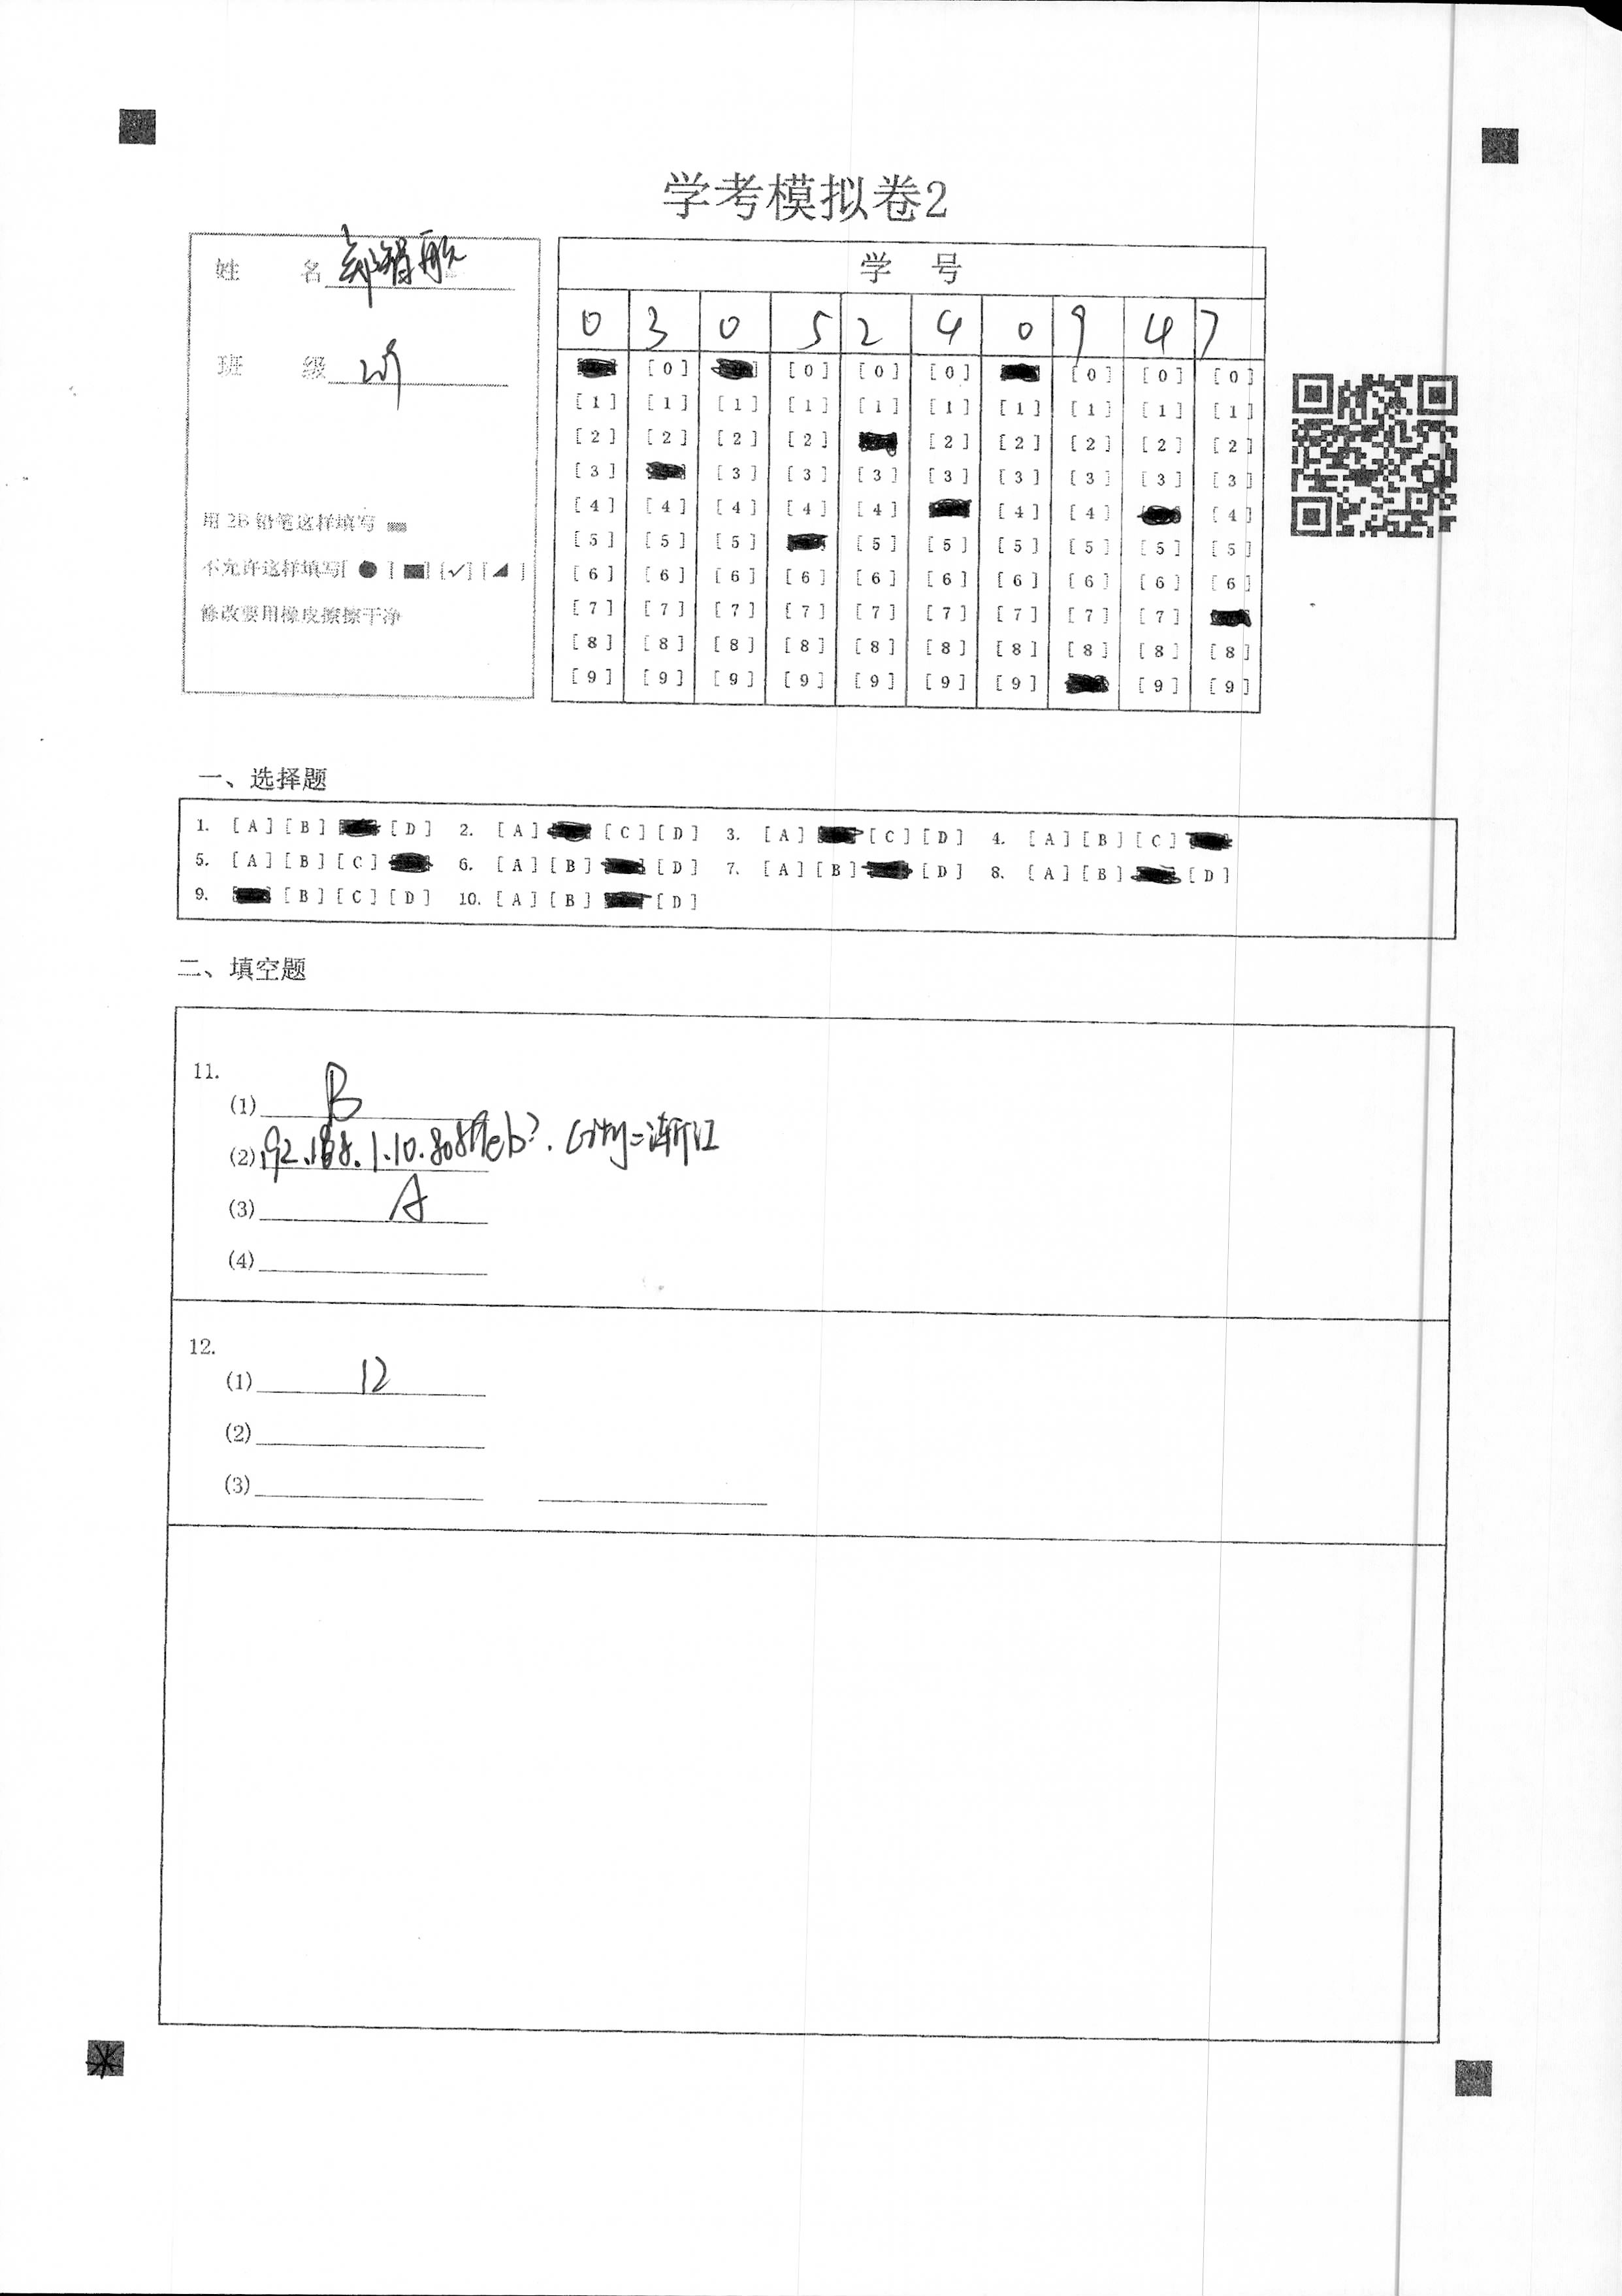 学考模拟卷2
姓 名
班 级
用 2B 铅笔这样填写
不允许这样填写[ ● [ ■] [✓] [ ◢ ]
修改要用橡皮擦擦干净
学 号
0 3 0 5 2 4 0 9 4 7
[0] [0] [0] [0] [0] [0] [0]
[1] [1] [1] [1] [1] [1] [1] [1] [1] [1]
[2] [2] [2] [2] [2] [2] [2] [2] [2]
[3] [3] [3] [3] [3] [3] [3] [3] [3]
[4] [4] [4] [4] [4] [4] [4] [4]
[5] [5] [5] [5] [5] [5] [5] [5] [5]
[6] [6] [6] [6] [6] [6] [6] [6] [6] [6]
[7] [7] [7] [7] [7] [7] [7] [7] [7]
[8] [8] [8] [8] [8] [8] [8] [8] [8] [8]
[9] [9] [9] [9] [9] [9] [9] [9] [9]
一、选择题
1. [A] [B] [D] 2. [A] [C] [D] 3. [A] [C] [D] 4. [A] [B] [C]
5. [A] [B] [C] 6. [A] [B] [D] 7. [A] [B] [D] 8. [A] [B] [D]
9. [B] [C] [D] 10. [A] [B] [D]
二、填空题
11.
(1) B
(2) city=浙江
(3) A
(4)
12.
(1) 12
(2)
(3)